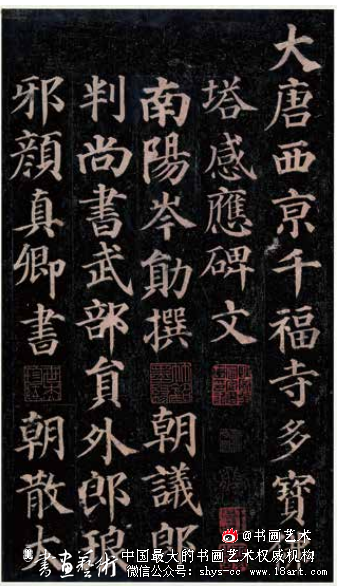 大唐西京千福寺多寶佛
塔感應碑文
南陽岑勛撰 朝議郎
判尚書武部員外郎琅
邪顏真卿書 朝散大
@书画艺术
書畫藝術 中国最大的书画艺术权威机构
微信公众号: shys-cc www.18art.com